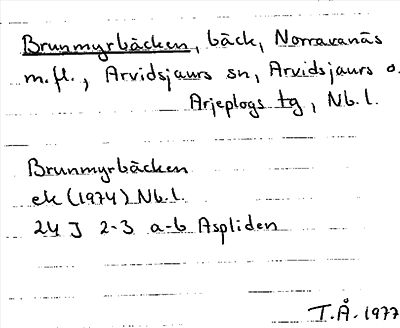 Brunmyrbäcken, bäck, Norravanäs
m.fl., Arvidsjaurs sn, Arvidsjaurs o.
Arjeplogs tg, Nb.l.
Brunmyrbäcken
ek (1974) Nb.l.
24 J 2-3 a-b Aspliden
T.Å. 1977